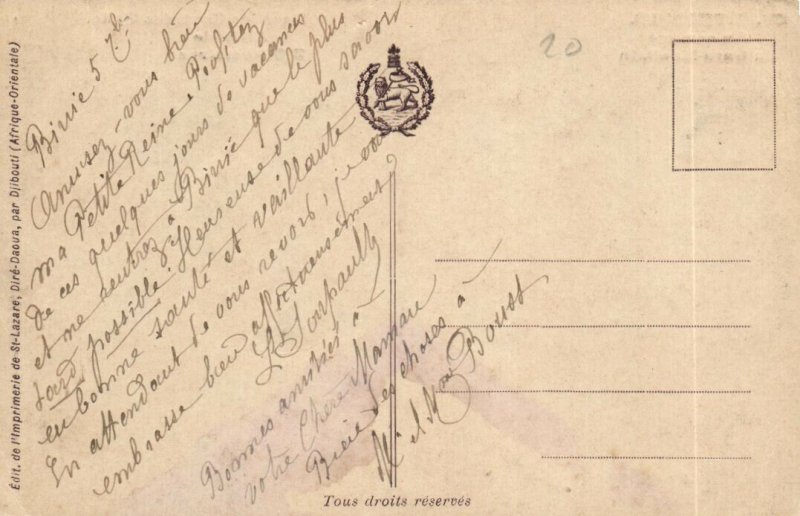 Édit. de l'Imprimerie de St-Lazare, Diré-Daoua, par Djibouti (Afrique-Orientale)
20
5 7bre
Amusez-vous bien
ma Petite Reine. Profitez
de ces quelques jours de vacances
et ne rentrez à que le plus
tard possible. Heureuse de vous savoir
en bonne santé et vaillante
En attendant de vous revoir, je vous
embrasse bien affectueusement
L. Soupault
Bonnes amitiés à
votre Chère Maman
Bien des choses à
M. et Mme
Tous droits réservés